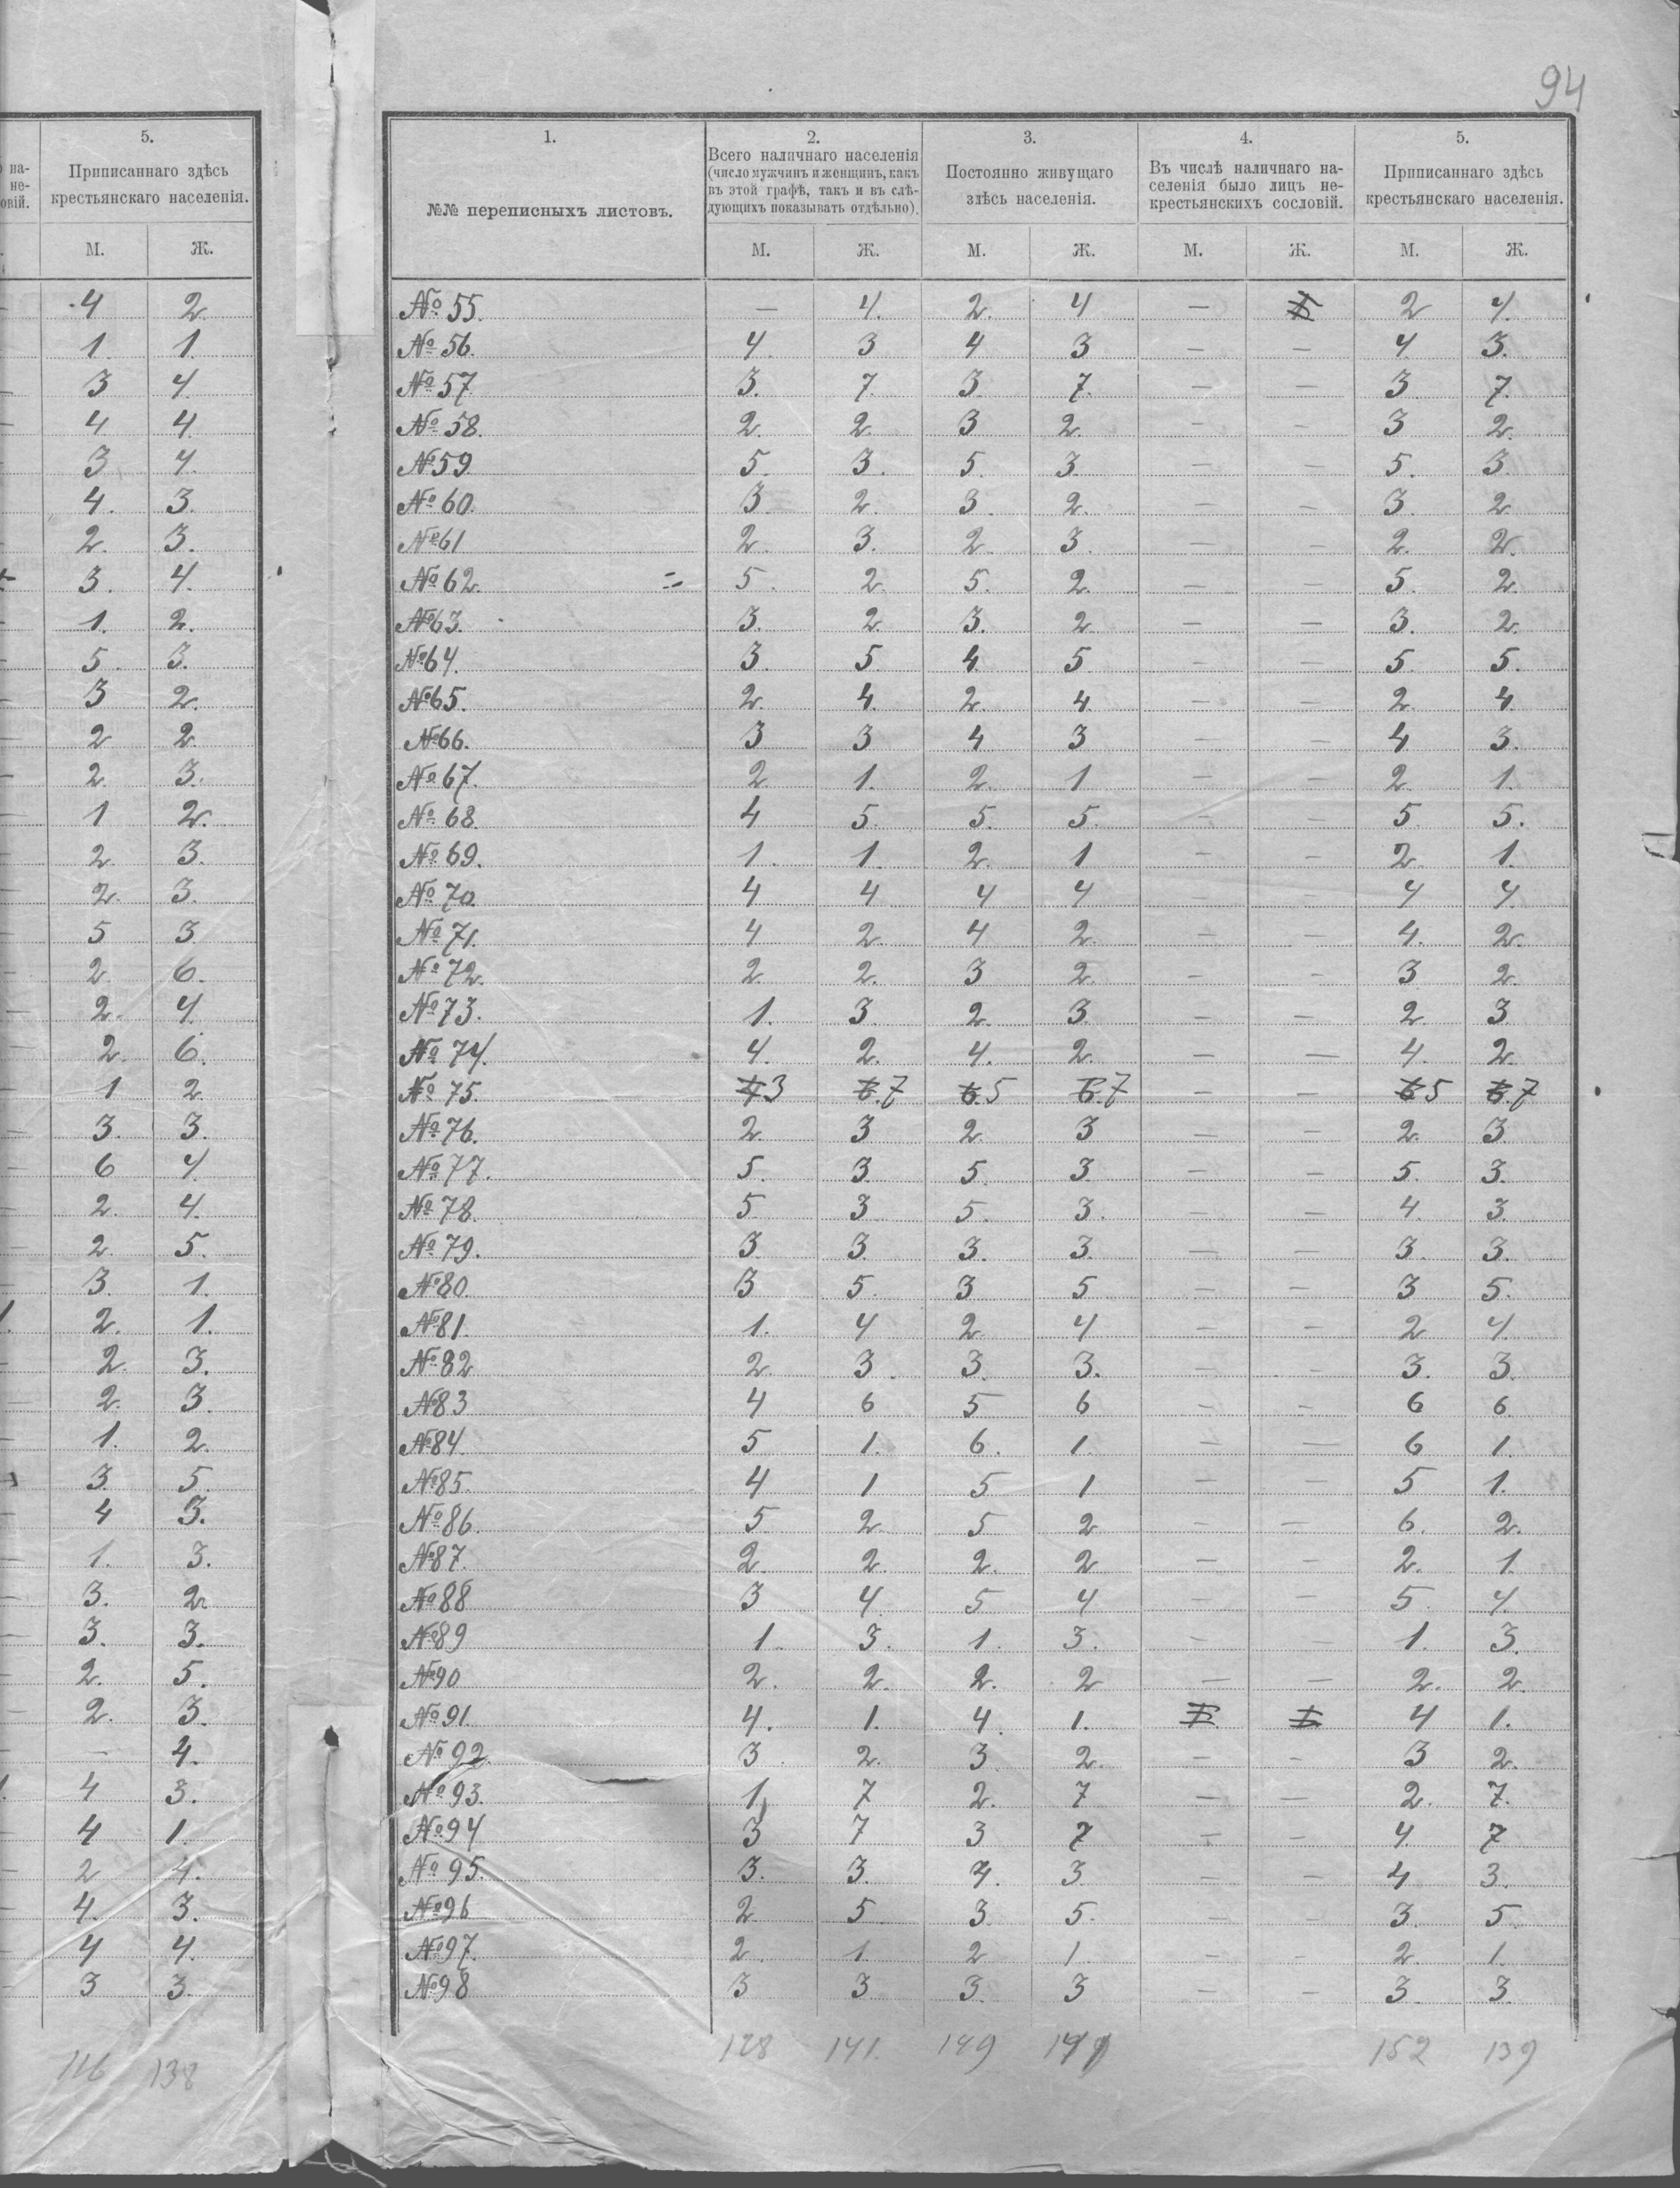 94
5.
Приписаннаго здѣсь
крестьянскаго населенія.
М. Ж.
4 2
1 1
3 4
4 4
3 4.
4. 3.
2. 3.
3. 4.
1. 2.
5. 3.
3 2.
2 2
2. 3.
1 2.
2. 3.
2. 3.
5 3
2. 6.
2. 4.
2. 6.
1 2
3. 3.
6 4
2. 4.
2. 5.
3. 1.
2. 1.
2. 3.
2. 3.
1. 2.
3. 5.
4 3.
1. 3.
3. 2
3. 3.
2. 5.
2. 3.
— 4.
4 3.
4 1.
2 4.
4. 3.
4 4.
3 3.
116 138
1. 2. 3. 4. 5.
№№ переписныхъ листовъ.
Всего наличнаго населенія
(число мужчинъ и женщинъ, какъ
въ этой графѣ, такъ и въ слѣ-
дующихъ показывать отдѣльно).
Постоянно живущаго
здѣсь населенія.
Въ числѣ наличнаго на-
селенія было лицъ не-
крестьянскихъ сословій.
Приписаннаго здѣсь
крестьянскаго населенія.
М. Ж. М. Ж. М. Ж. М. Ж.
№ 55. — 4. 2. 4 — 2 4.
№ 56. 4. 3 4 3 — — 4 3.
№ 57. 3. 7. 3. 7. — — 3 7.
№ 58. 2. 2. 3 2. — — 3 2.
№ 59. 5. 3. 5. 3. — — 5. 3.
№ 60. 3. 2. 3. 2. — — 3. 2
№ 61 2. 3. 2. 3. — — 2. 2.
№ 62. 5. 2. 5. 2. — — 5. 2.
№ 63. 3. 2. 3. 2. — — 3. 2.
№ 64. 3. 5 4. 5 — — 5. 5.
№ 65. 2. 4. 2. 4. — — 2. 4.
№ 66. 3 3 4 3 — — 4. 3.
№ 67. 2 1. 2. 1 — — 2. 1.
№ 68. 4 5. 5. 5. — — 5. 5.
№ 69. 1. 1. 2. 1 — — 2. 1.
№ 70. 4 4 4 4 — — 4 4
№ 71. 4 2. 4 2. — — 4. 2.
№ 72. 2. 2. 3 2. — — 3 2.
№ 73. 1. 3. 2. 3. — — 2. 3
№ 74. 4. 2. 4. 2. — — 4. 2.
№ 75. 3 7 5 7 — — 5 7
№ 76. 2. 3 2. 3 — — 2. 3
№ 77. 5. 3. 5. 3 — — 5. 3.
№ 78. 5 3 5. 3. — — 4. 3.
№ 79. 3. 3. 3. 3. — — 3. 3.
№ 80. 3 5. 3 5 — — 3 5.
№ 81. 1. 4 2. 4 — — 2 4.
№ 82 2. 3. 3. 3. — — 3. 3.
№ 83 4 6 5 6 — — 6 6
№ 84. 5 1. 6. 1. — — 6 1.
№ 85. 4 1 5 1 — — 5 1.
№ 86. 5 2. 5 2 — — 6. 2.
№ 87. 2. 2. 2. 2 — — 2. 1.
№ 88 3 4. 5 4 — — 5. 4.
№ 89 1. 3. 1. 3. — — 1. 3.
№ 90 2. 2. 2. 2 — — 2. 2.
№ 91. 4. 1. 4. 1. 4 1.
№ 92. 3. 2. 3 2. — — 3 2.
№ 93. 1 7 2. 7 — — 2. 7.
№ 94 3 7 3 7 — — 4. 7
№ 95. 3. 3. 4. 3 — — 4 3.
№ 96 2. 5. 3. 5. — — 3. 5.
№ 97. 2. 1 2 1 — — 2. 1.
№ 98 3 3 3. 3 — — 3. 3.
128 141. 149 152 139